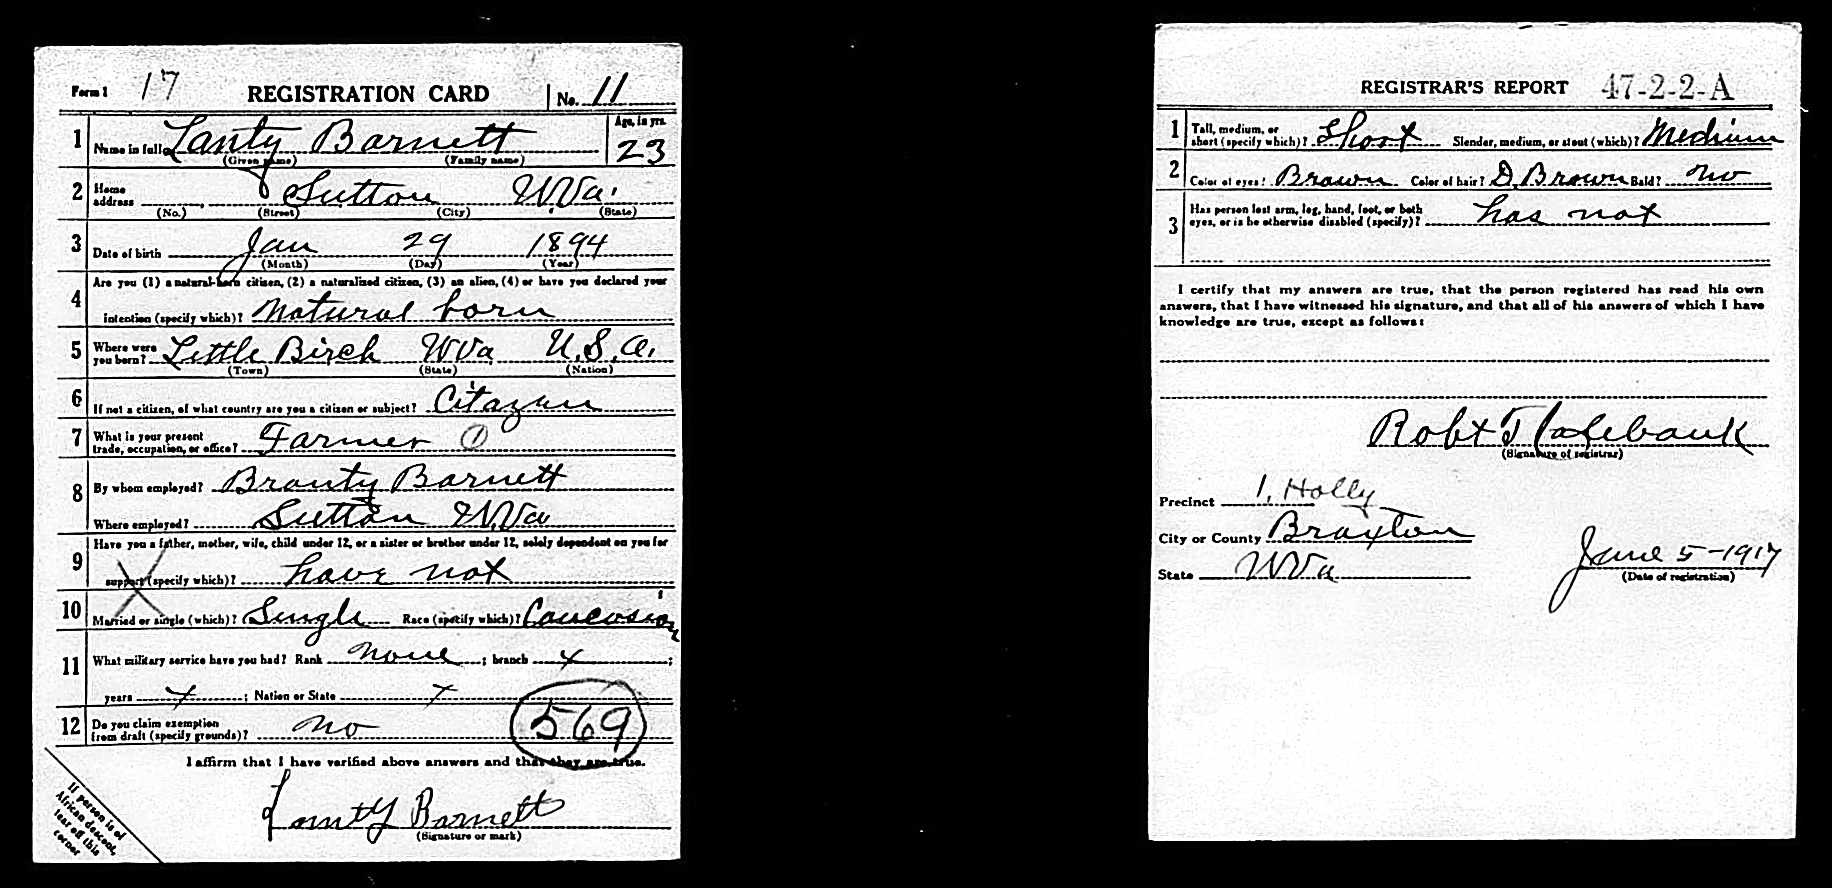 Form 1 17 REGISTRATION CARD No. 11
1 Name in full Lanty Barnett Age, in yrs. 23
(Given name) (Family name)
2 Home address Sutton W.Va.
(No.) (Street) (City) (State)
3 Date of birth Jan 29 1894
(Month) (Day) (Year)
4 Are you (1) a natural-born citizen, (2) a naturalized citizen, (3) an alien, (4) or have you declared your
intention (specify which)? Natural born
5 Where were you born? Little Birch WVa U.S.A.
(Town) (State) (Nation)
6 If not a citizen, of what country are you a citizen or subject? Citazen
7 What is your present trade, occupation, or office? Farmer 1
8 By whom employed? Branty Barnett
Where employed? Sutton W.Va
9 Have you a father, mother, wife, child under 12, or a sister or brother under 12, solely dependent on you for
support (specify which)? have not
10 Married or single (which)? Single Race (specify which)? Caucasian
11 What military service have you had? Rank None ; branch x ;
years x ; Nation or State x
12 Do you claim exemption from draft (specify grounds)? No
569
I affirm that I have verified above answers and that they are true.
Lanty Barnett
(Signature or mark)
If person is of
African descent,
tear off this
corner
REGISTRAR'S REPORT 47-2-2-A
1 Tall, medium, or short (specify which)? Short Slender, medium, or stout (which)? Medium
2 Color of eyes? Brown Color of hair? D. Brown Bald? No
3 Has person lost arm, leg, hand, foot, or both
eyes, or is he otherwise disabled (specify)? has not
I certify that my answers are true, that the person registered has read his own
answers, that I have witnessed his signature, and that all of his answers of which I have
knowledge are true, except as follows:
Robt
(Signature of registrar)
Precinct 1, Holly
City or County Braxton
State WVa
June 5-1917
(Date of registration)